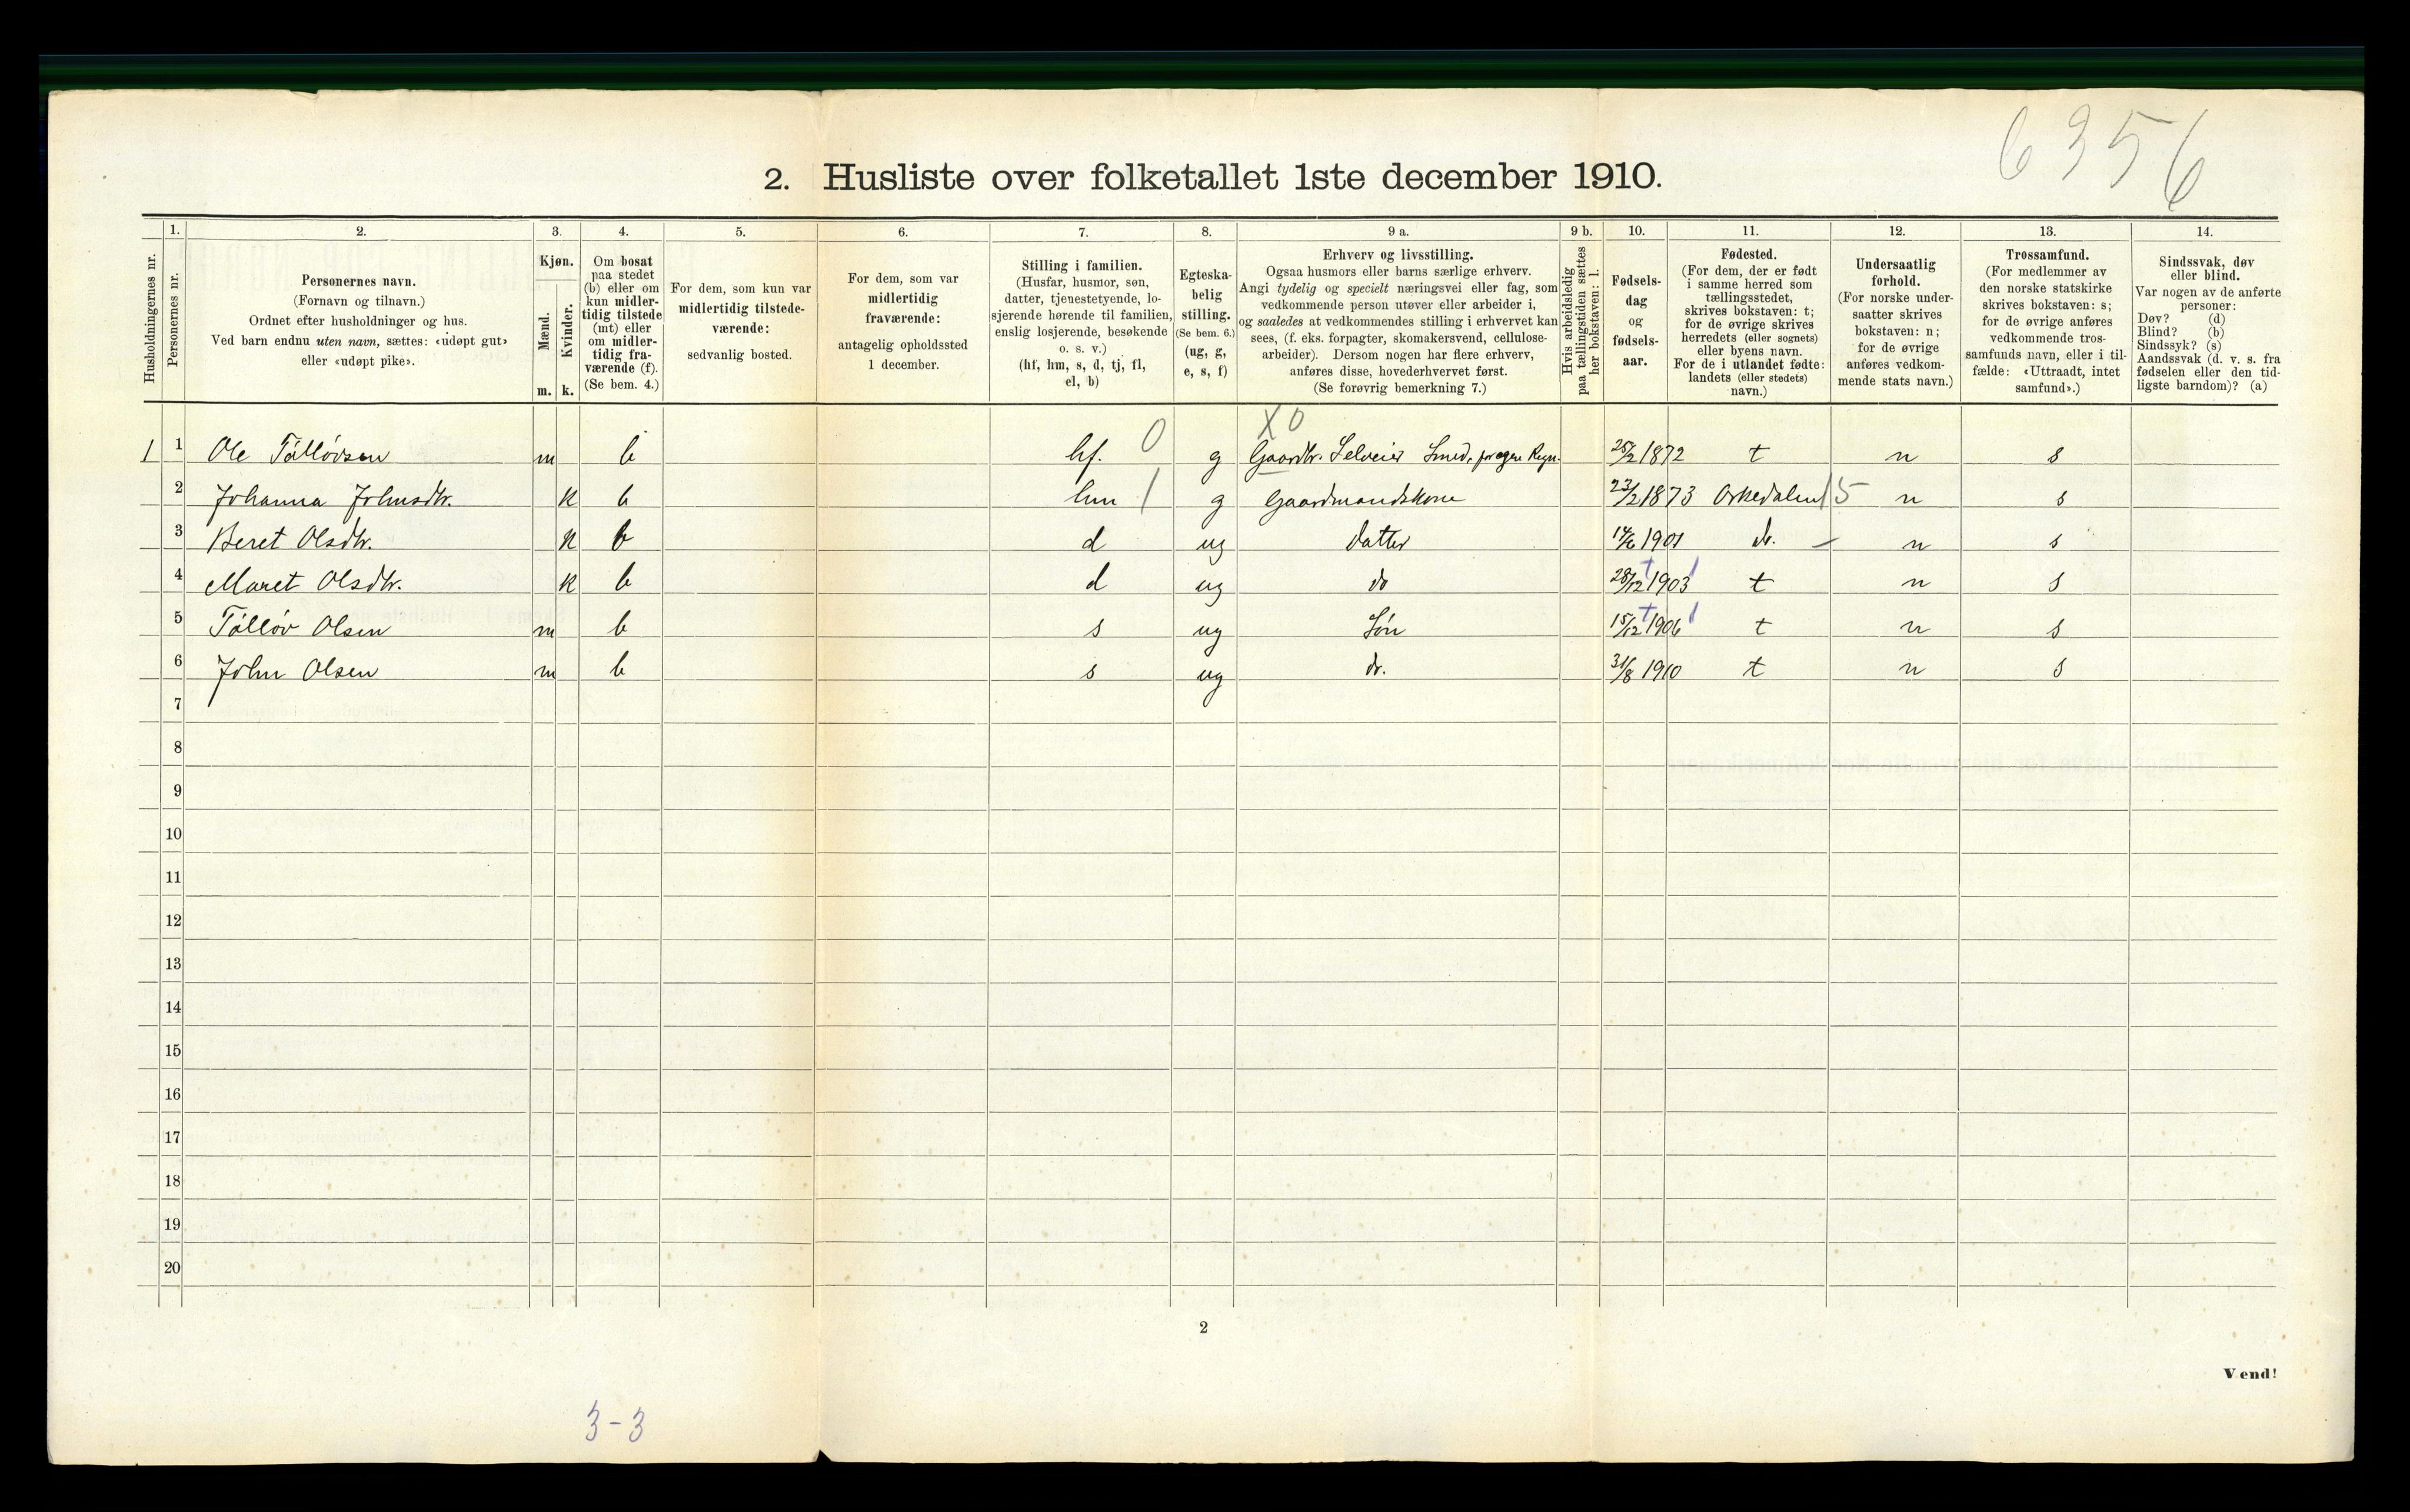 6356
2. Husliste over folketallet 1ste december 1910.
Husholdningernes nr.
1.
Personernes nr.
2.
Personernes navn.
(Fornavn og tilnavn.)
Ordnet efter husholdninger og hus.
Ved barn endnu uten navn, sættes: «udøpt gut»
eller «udøpt pike».
3.
Kjøn.
Mænd.
m.
Kvinder.
k.
4.
Om bosat
paa stedet
(b) eller om
kun midler-
tidig tilstede
(mt) eller
om midler-
tidig fra-
værende (f).
(Se bem. 4.)
5.
For dem, som kun var
midlertidig tilstede-
værende:
sedvanlig bosted.
6.
For dem, som var
midlertidig
fraværende:
antagelig opholdssted
1 december.
7.
Stilling i familien.
(Husfar, husmor, søn,
datter, tjenestetyende, lo-
sjerende hørende til familien,
enslig losjerende, besøkende
o. s. v.)
(hf, hm, s, d, tj, fl,
el, b)
8.
Egteska-
belig
stilling.
(Se bem. 6.)
(ug, g,
e, s, f)
9 a.
Erhverv og livsstilling.
Ogsaa husmors eller barns særlige erhverv.
Angi tydelig og specielt næringsvei eller fag, som
vedkommende person utøver eller arbeider i,
og saaledes at vedkommendes stilling i erhvervet kan
sees, (f. eks. forpagter, skomakersvend, cellulose-
arbeider). Dersom nogen har flere erhverv,
anføres disse, hovederhvervet først.
(Se forøvrig bemerkning 7.)
9 b.
Hvis arbeidsledig
paa tællingstiden sættes
her bokstaven: l.
10.
Fødsels-
dag
og
fødsels-
aar.
11.
Fødested.
(For dem, der er født
i samme herred som
tællingsstedet,
skrives bokstaven: t;
for de øvrige skrives
herredets (eller sognets)
eller byens navn.
For de i utlandet fødte:
landets (eller stedets)
navn.)
12.
Undersaatlig
forhold.
(For norske under-
saatter skrives
bokstaven: n;
for de øvrige
anføres vedkom-
mende stats navn.)
13.
Trossamfund.
(For medlemmer av
den norske statskirke
skrives bokstaven: s;
for de øvrige anføres
vedkommende tros-
samfunds navn, eller i til-
fælde: «Uttraadt, intet
samfund».)
14.
Sindssvak, døv
eller blind.
Var nogen av de anførte
personer:
Døv? (d)
Blind? (b)
Sindssyk? (s)
Aandssvak (d. v. s. fra
fødselen eller den tid-
ligste barndom)? (a)
X 0
1 1 Ole Tølløvsen m b hf. 0 g Gaardbr. Selveier Smed, for egen Regn. 25/2 1872 t n s
2 Johanna Johnsdtr. k b hm 1 g Gaardmandskone 23/2 1873 Orkedalen 15 n s
3 Beret Olsdtr. k b d ug datter 14/6 1901 do. – n s
4 Maret Olsdtr. k b d ug do 28/12 1903 t n s
5 Tølløv Olsen m b s ug Søn 15/12 1906 t n s
6 John Olsen m b s ug do. 31/8 1910 t n s
7
8
9
10
11
12
13
14
15
16
17
18
19
20
2
Vend!
3-3